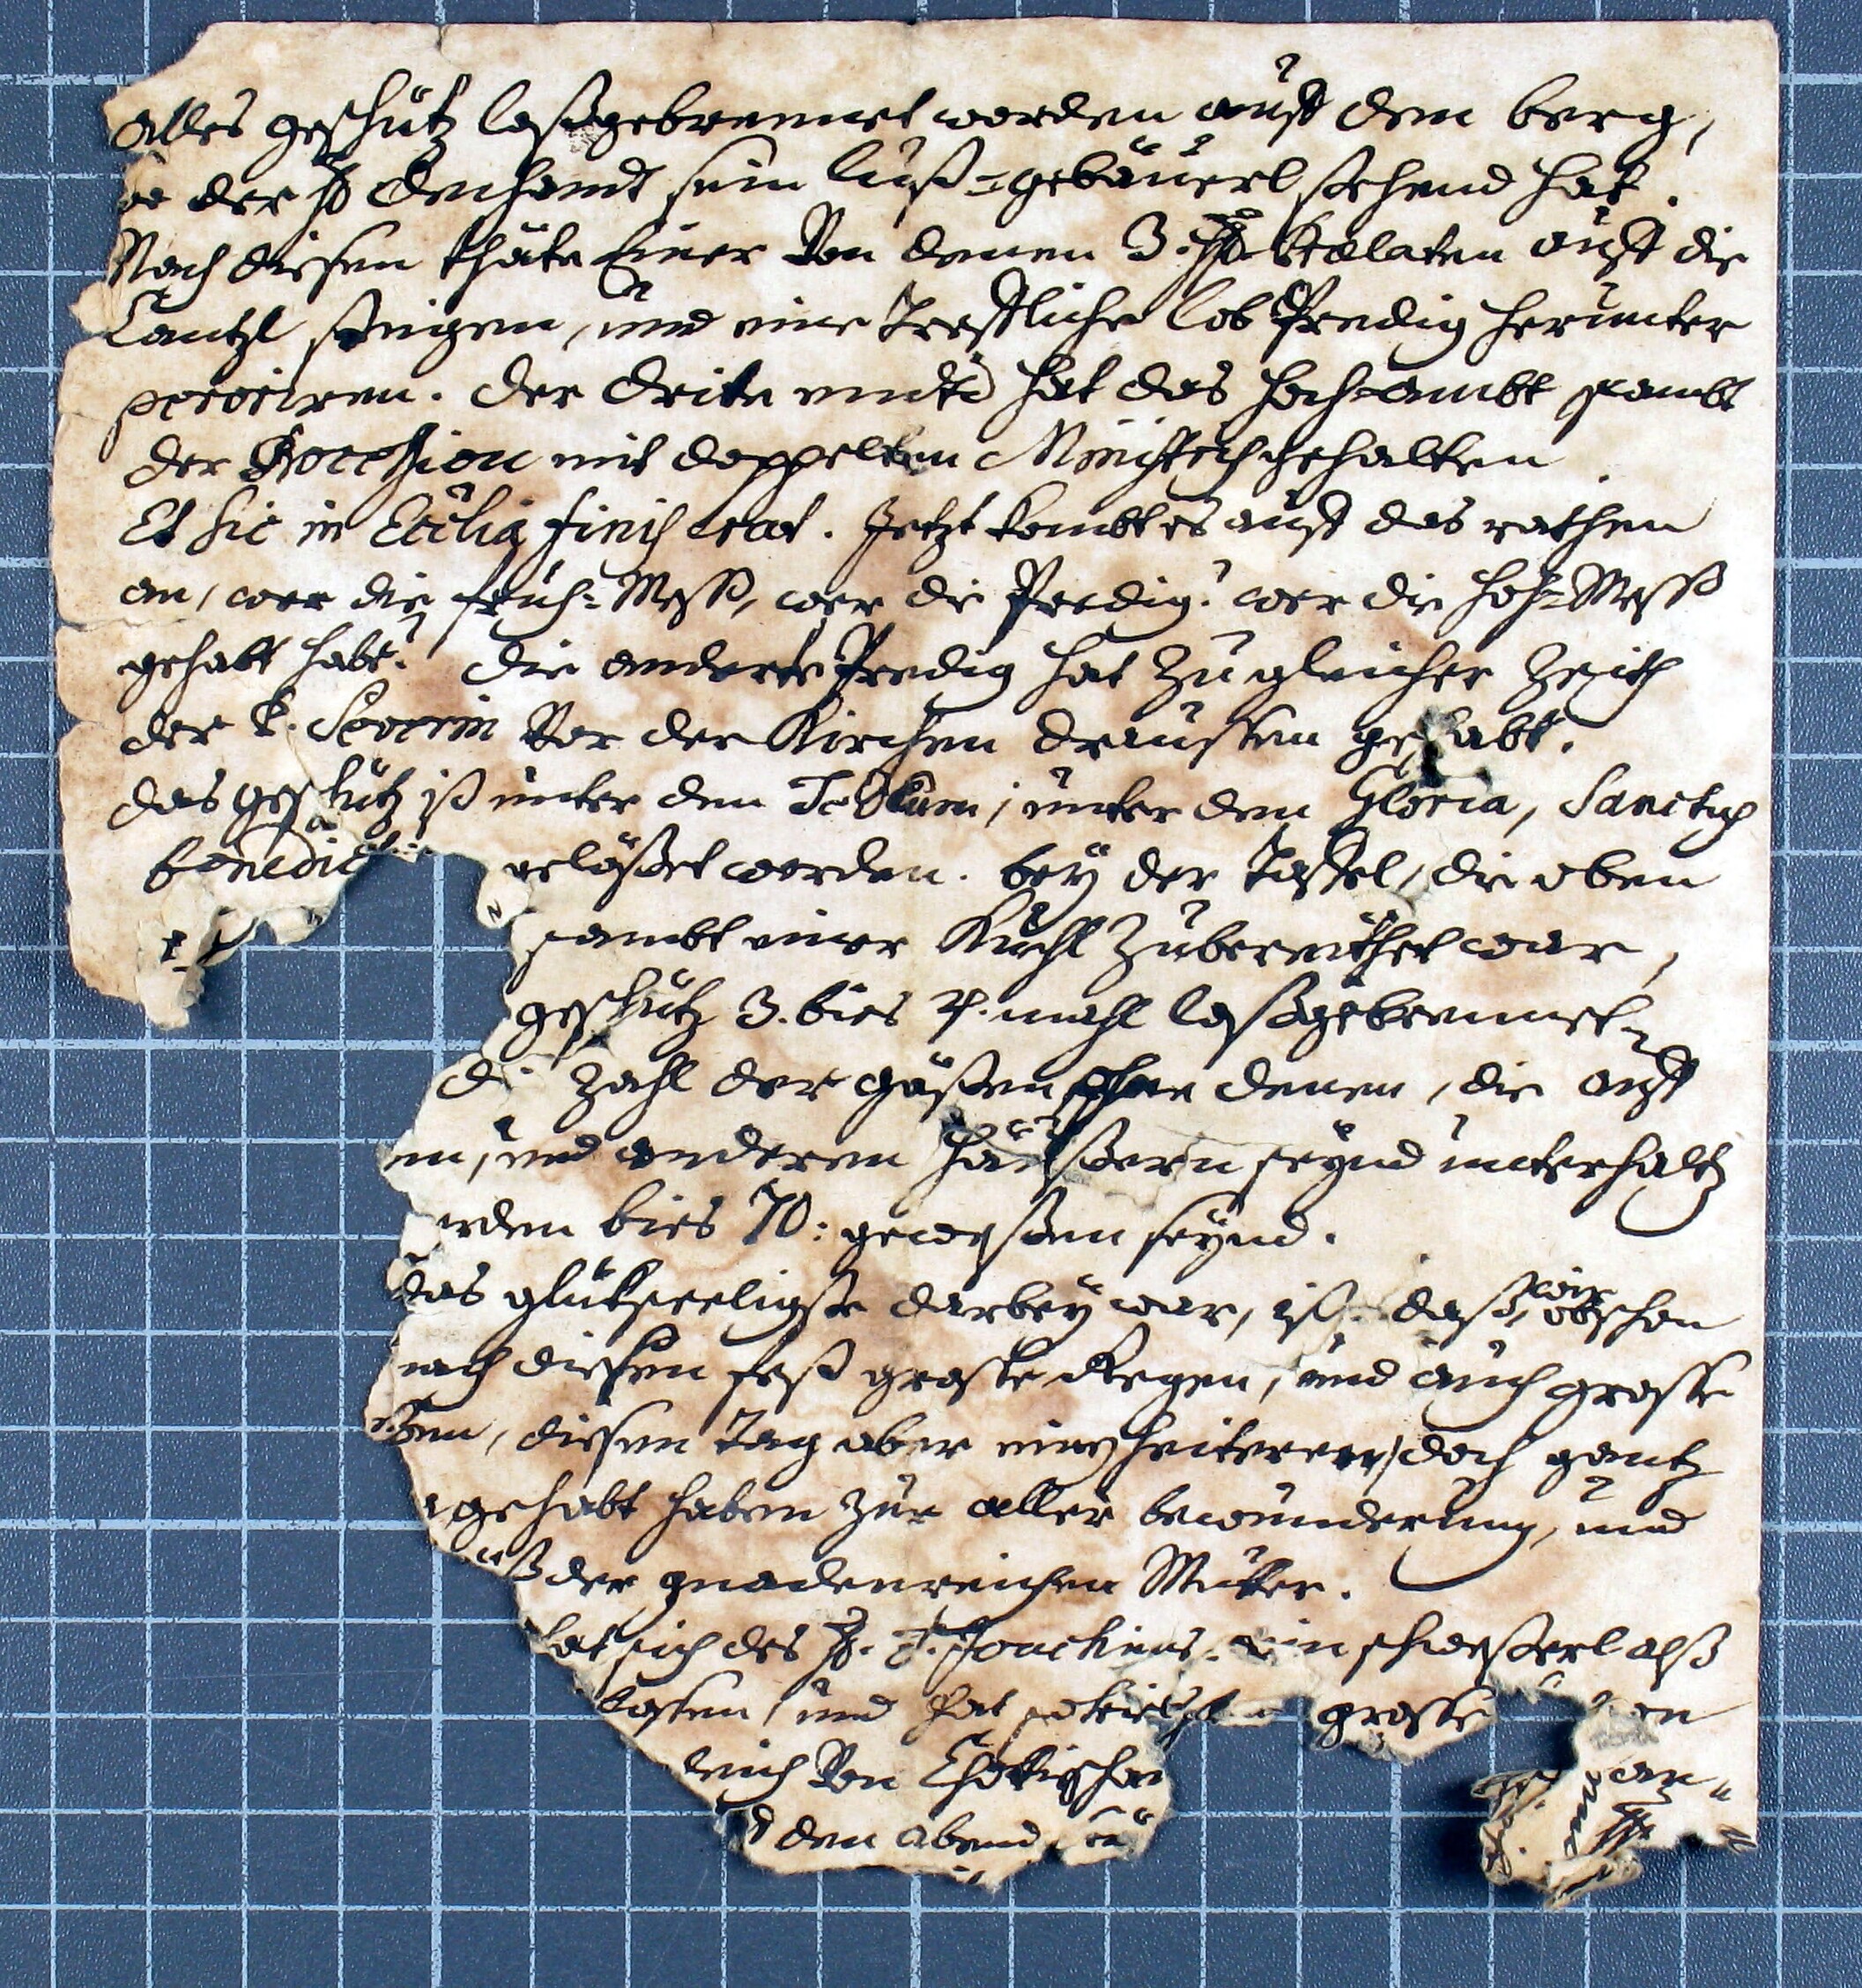 alles geschütz loßgebrennet worden auff dem berg,
wo der H Dechandt sein lust-gebäuerl stehend hat.
Nach diesen thäte Einer Von denen 3. HH Prælaten auff die
Cantzl steigen, und eine Treffliche lob Predig herunter
peroriren. Der drite endtl hat das Hoch-ambt sambt
der Procession mit doppelten gehalten
Et sic in Ecclia finis erat. Jetzt kombt es auff das rathen
an, wer die früh-Meß, wer die Predig? wer die Hoh-Mess
gehabt habe? Die anderte Predig hat Zu gleicher Zeith
der P. Severin Vor der Kirchen draussen gehabt.
das geschütz ist unter den Te Deum, unter dem Gloria, Sanctus
benedict gelößet worden. bey der Taffel, die oben
sambt einer Kuchl Zubereithet war,
geschütz 3. bies 4. mahl loßgebrennet
die Zahl der gästen ohne denen, die auff
en, und anderen Häußern seynd unterhaltn
rden bies 70: geweßen seynd.
das glükseeligste darbey war, ist daß, wir obschon
nach diesen fest grosse Regen, und auch grosse
ßen, diesen Tag aber einen heiteren, doch gantz
gehabt haben zur aller bewunderung, und
der gnadenreichen Mutter.
hat sich des H. P. Joachims ein schwesterl alß
lassen, und hat grosse
Von
den abend